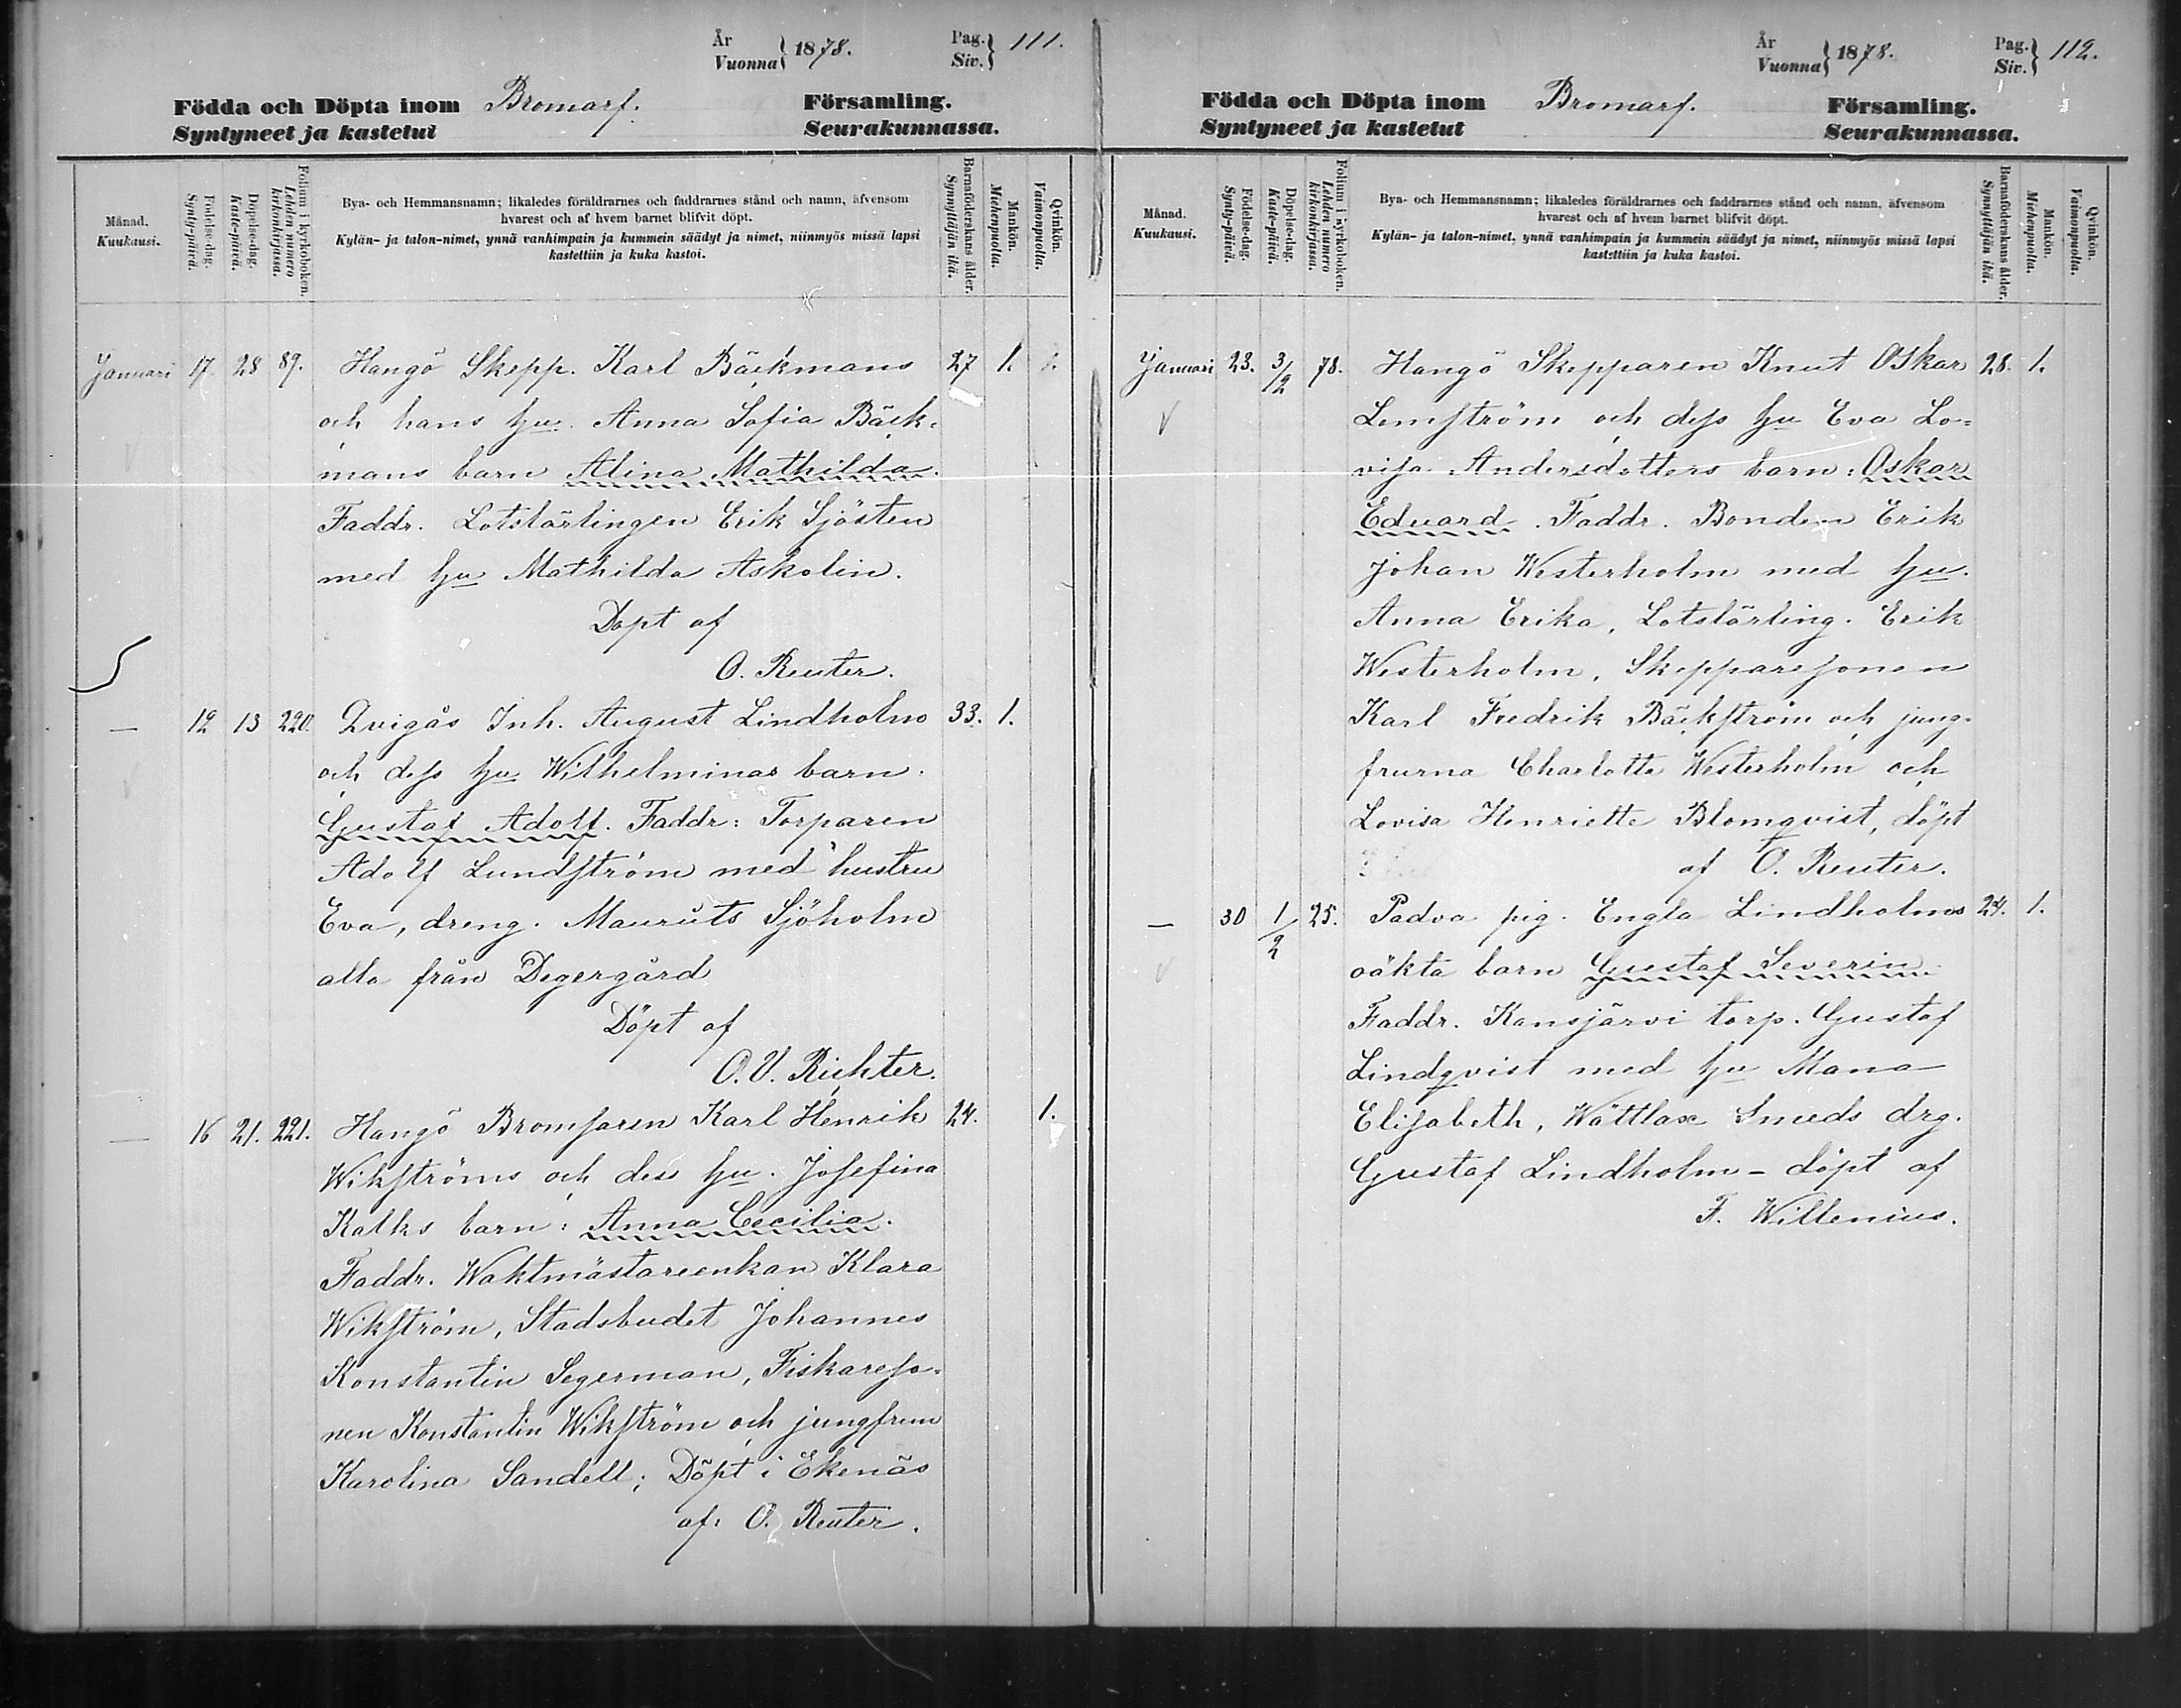 År
Vuonna } 1878.
Pag.
Siv. } 111.
Födda och Döpta inom Bromarf. Församling.
Syntyneet ja kastetut Seurakunnassa.
Månad.
Kuukausi.
Födelse-dag.
Synty-päivä.
Döpelse-dag.
Kaste-päivä.
Folium i kyrkoboken.
Lehden numero kirkonkirjassa.
Bya- och Hemmansnamn; likaledes föräldrarnes och faddrarnes stånd och namn, äfvensom
hvarest och af hvem barnet blifvit döpt.
Kylän- ja talon-nimet, ynnä vanhimpain ja kummein säädyt ja nimet, niinmyös missä lapsi
kastettiin ja kuka kastoi.
Barnaföderskans ålder.
Synnyttäjän ikä.
Mankön.
Miehenpuolta.
Qvinkön.
Vaimonpuolta.
Januari 17. 28 89. Hangö Skepp. Karl Bäckmans 27 1.
och hans hu. Anna Sofia Bäck-
mans barn Alina Mathilda.
Faddr. Lotslärlingen Erik Sjösten
med hu Mathilda Askolin.
Döpt af
O. Reuter.
— 12 13 220. Qvigås Inh. August Lindholms 33. 1.
och dess hu Wilhelminas barn.
Gustaf Adolf. Faddr: Torparen
Adolf Lundström med hustru
Eva, dreng. Mauruts Sjöholm
alla från Degergård
Döpt af
O. V. Richter.
— 16 21. 221. Hangö Bromsaren Karl Henrik 24. 1.
Wikströms och dess hu. Josefina
Kalks barn: Anna Cecilia.
Faddr. Waktmästareenkan Klara
Wikström, Stadsbudet Johannes
Konstantin Segerman, Fiskareso-
nen Konstantin Wikström och jungfrun
Karolina Sandell; Döpt i Ekenäs
af: O. Reuter.
År
Vuonna } 1878.
Pag.
Siv. } 112.
Födda och Döpta inom Bromarf. Församling.
Syntyneet ja kastetut Seurakunnassa.
Månad.
Kuukausi.
Födelse-dag.
Synty-päivä.
Döpelse-dag.
Kaste-päivä.
Folium i kyrkoboken.
Lehden numero kirkonkirjassa.
Bya- och Hemmansnamn; likaledes föräldrarnes och faddrarnes stånd och namn, äfvensom
hvarest och af hvem barnet blifvit döpt.
Kylän- ja talon-nimet, ynnä vanhimpain ja kummein säädyt ja nimet, niinmyös missä lapsi
kastettiin ja kuka kastoi.
Barnaföderskans ålder.
Synnyttäjän ikä.
Mankön.
Miehenpuolta.
Qvinkön.
Vaimonpuolta.
Januari 23. 3/2 78. Hangö Skepparen Knut Oskar 28. 1.
Lemström och dess hu Eva Lo-
visa Andersdotters barn: Oskar
Eduard. Faddr. Bonden Erik
Johan Westerholm med hu.
Anna Erika, Lotslärling. Erik
Westerholm, Skepparesonen
Karl Fredrik Bäckström och jung-
frurna Charlotta Westerholm och
Lovisa Henriette Blomqvist, döpt
af O. Reuter.
— 30 1/2 25. Padva pig. Engla Lindholms 24. 1.
oäkta barn Gustaf Severin
Faddr. Kansjärvi torp. Gustaf
Lindqvist med hu Mana
Elisabeth, Wättlax Smeds drg.
Gustaf Lindholm - döpt af
F. Willenius.